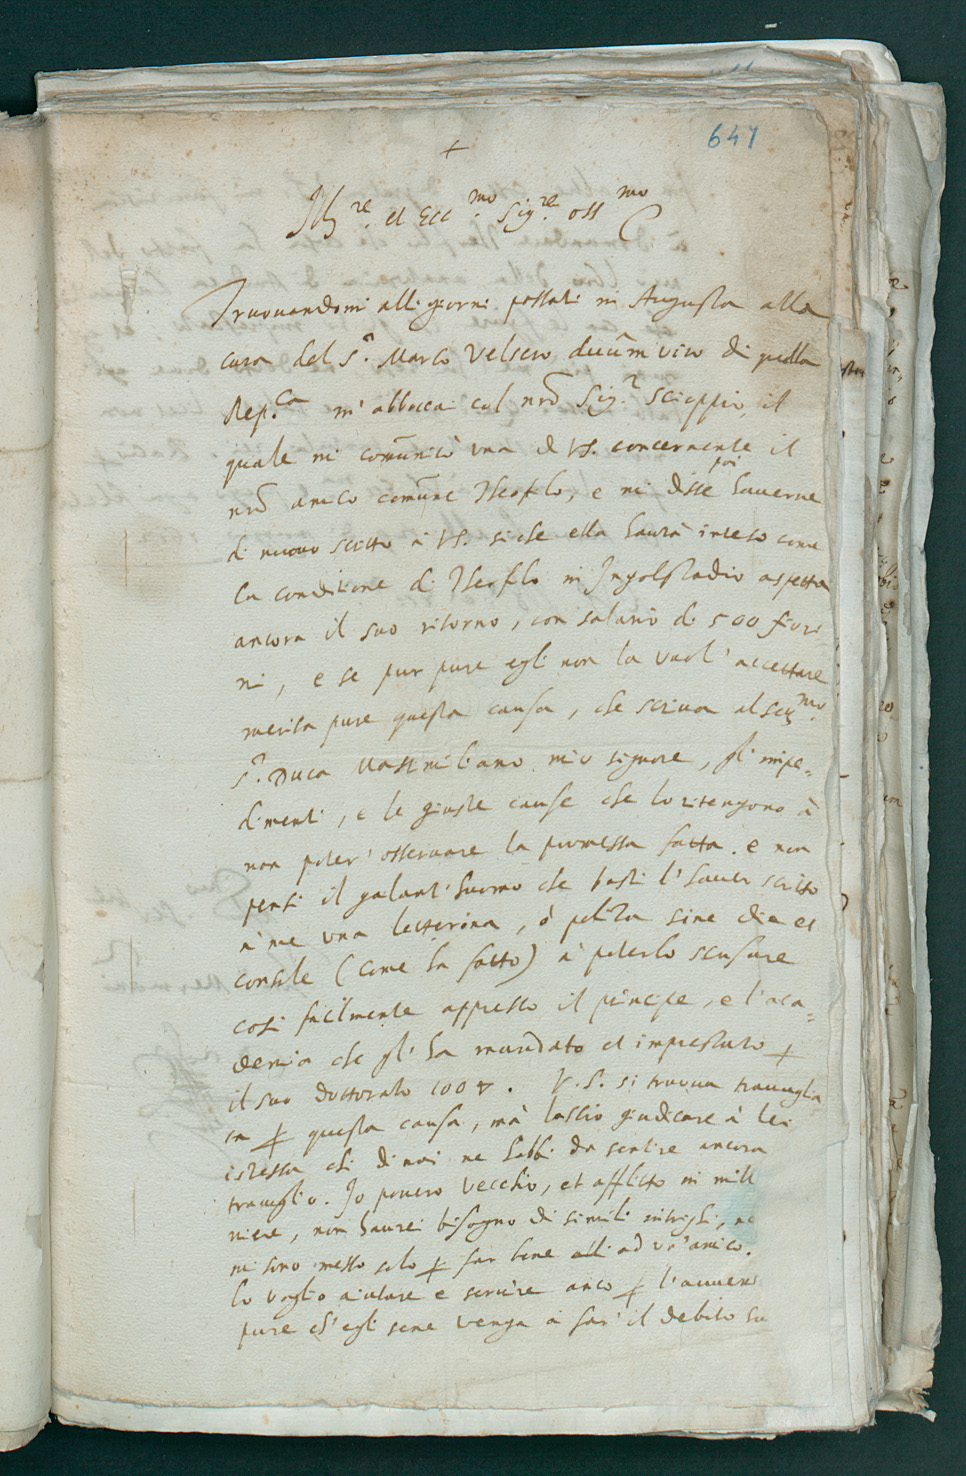 647
+
Ill.re et Ecc.mo Sig.re oss.mo
Trovandomi alli giorni passati in Augusta alla
casa del S.r Marco Velsero duumviro di quella
Rep.ca m'abboccai col nrõ Sig.r Scioppio, il
quale mi comunicò una di VS. concernente il
nrõ amico comune Theofilo, e mi disse poi haverne
di nuovo scritto à VS. siche ella haurà inteso come
la condizione di Theofilo in Ingolstadio aspetta
ancora il suo ritorno, con salario di 500 fiori
ni, e se pur pure egli non la vuol' accettare
merita pure questa causa, che scriva al Ser.mo
S.r Duca Massimiliano mio signore, gli impe=
dimenti, e le giuste cause che lo ritengono à
non poter' osservare la promessa fatta. e non
pensi il galant'huomo che basti l'haver scritto
à me una letterina, ò polizza sine die et
consule (come ha fatto) à poterlo scusare
cosi facilmente appresso il principe, e l'aca=
demia che gl'ha mandato et imprestato p
il suo dottorato 100 V. V.S. si truova travaglia
ta p questa causa, mà lascio giudicare à lei
istessa chi di noi ne habbi da sentire ancora
travaglio. Io povero vecchio, et afflitto in mill
niere, non haurei bisogno di simili intrighi,
mi sono messo solo p far bene ad un'amico.
lo voglio aiutare e servire anco p l'avveni
pure ch'egli sene venga à far il debito su